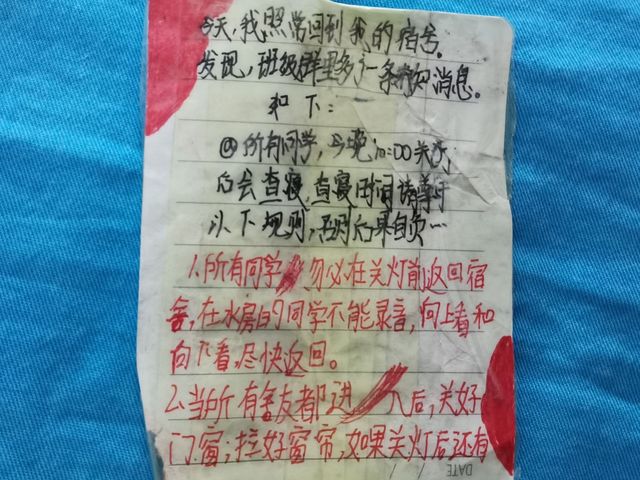 今天,我照常回到我的宿舍。
发现,班级群里多了一条 消息。
如下:
@所有同学,今晚10:00关灯
后会查寝,查寝时间请遵守
以下规则,否则后果自负…
1.所有同学 勿必在关灯前返回宿
舍,在水房的同学不能录音,向上看和
向下看,尽快返回。
2.当所有舍友都进 入后,关好
门窗;拉好窗帘,如果关灯后还有
DATE / /